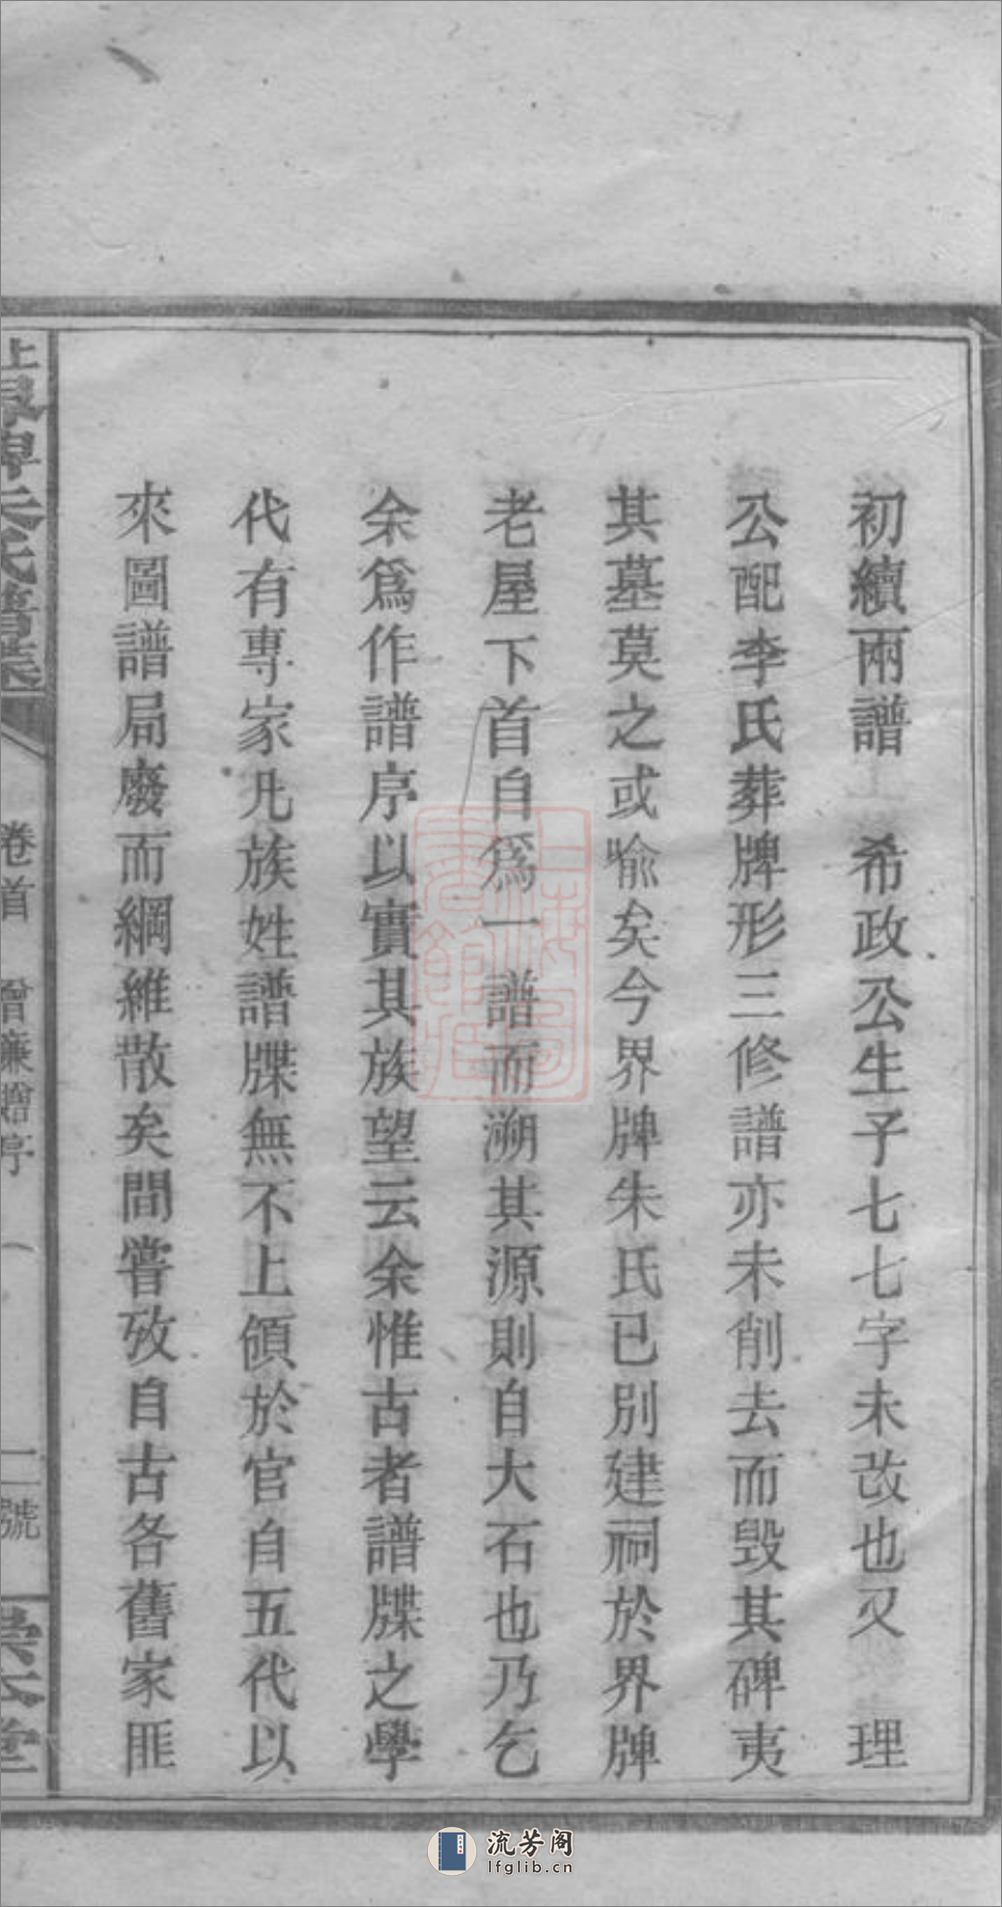 初續兩譜　希政公生子七七字未改也又　理
公配李氏葬牌形三修譜亦未削去而毀其碑夷
其墓莫之或喻矣今界牌朱氏已別建祠於界牌
老屋下首自爲一譜而溯其源則自大石也乃乞
余爲作譜序以實其族望云余惟古者譜牒之學
代有專家凡族姓譜牒無不上領於官自五代以
來圖譜局廢而綱維散矣間嘗攷自古各舊家匪
上界牌朱氏譜
卷首　曾廉贈序　二號　崇本堂
上海圖書館藏
流芳阁
lfglib.cn